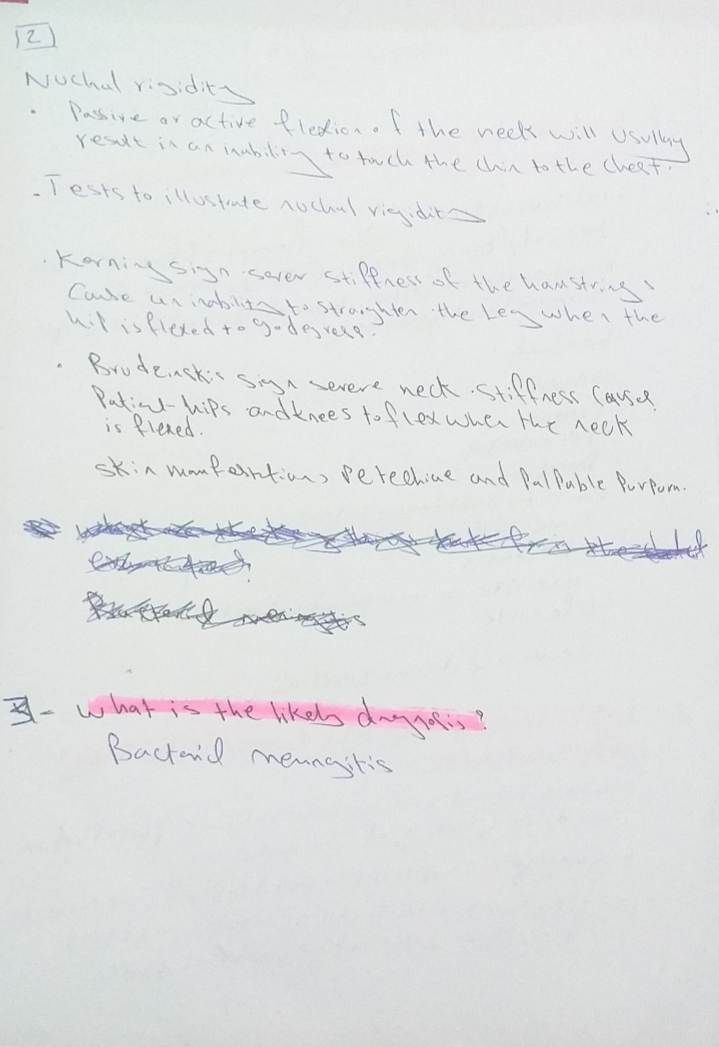 12
Nuchal rigidity
• Passive or active flexion of the neck will usullay
result in an inability to touch the chin to the chest.
- Tests to illustrate nuchal rigidity
• Kerning sign sever stiffness of the hamstrings
Cause an inability to straighten the Leg when the
hip is flexed to 90 degress.
• Brudzinskis sign severe neck stiffness Causes
Patient hips and knees to flex when the neck
is flexed.
skin manfestations Petechiae and Palpable Purpura.
3- What is the likely diagnosis?
Bacterial meningitis